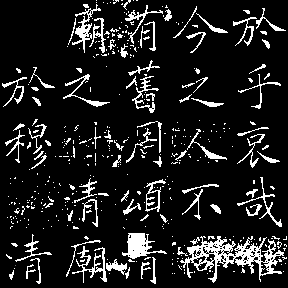 於乎哀哉惟
今之人不尚
有舊周頌清
廟之什清廟
於穆清